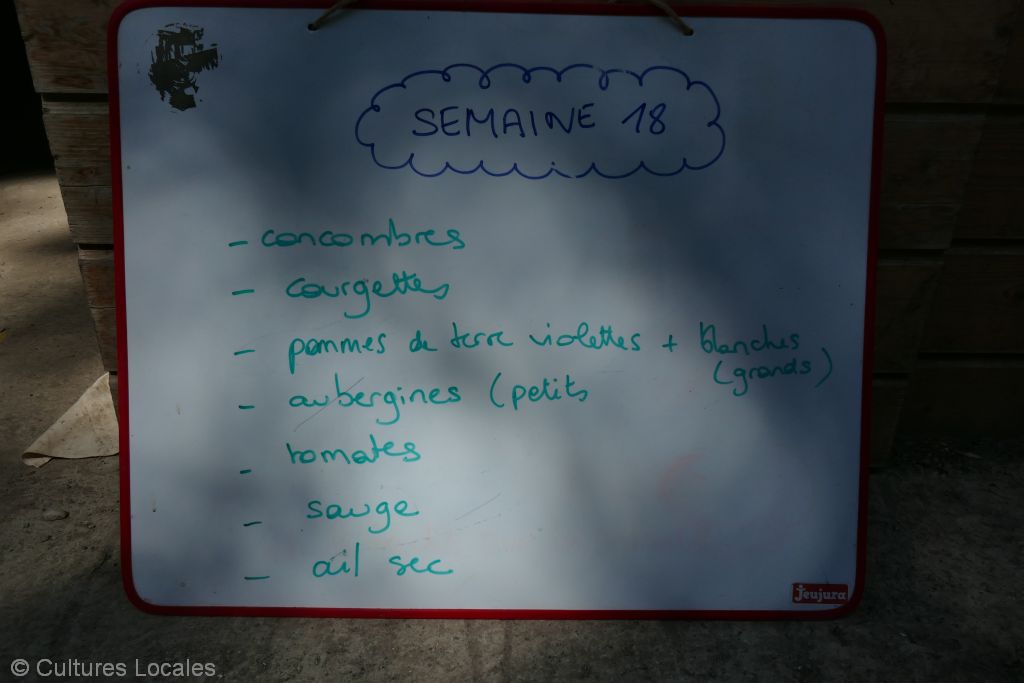 SEMAINE 18
- concombres
- courgettes
- pommes de terre violettes + blanches
(grands)
- aubergines (petits
- tomates
- sauge
- ail sec
Jeujura
© Cultures Locales